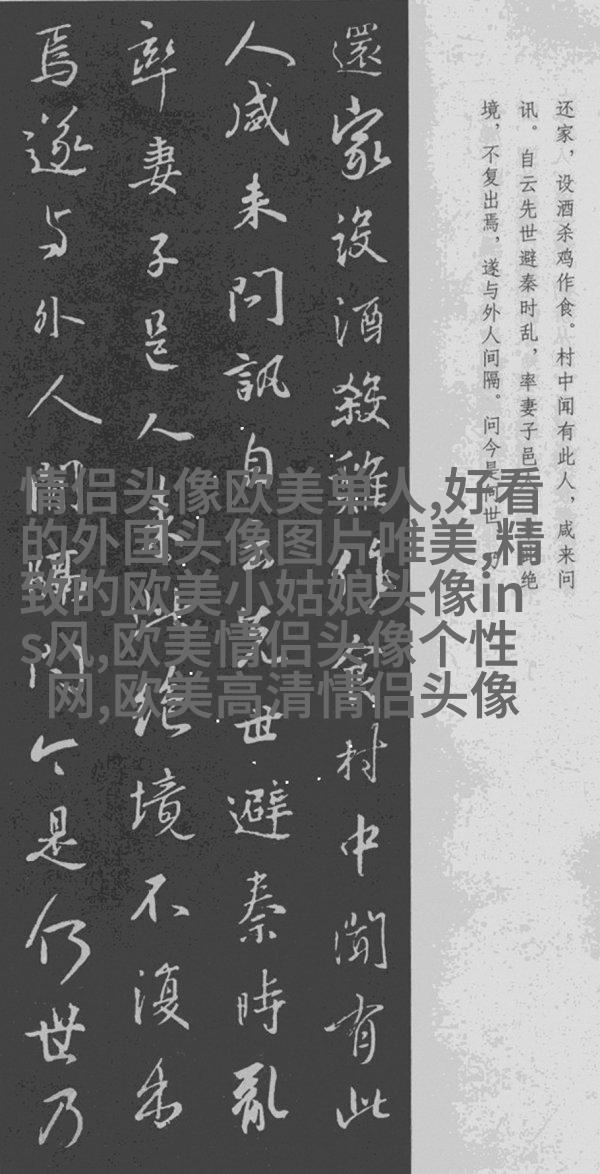 还家，设酒杀鸡作食。村中闻有此人，咸来问
讯。自云先世避秦时乱，率妻子邑绝
境，不复出焉，遂与外人间隔。问今是何世，乃
還家設酒殺雞作食村中聞有此
人咸来問訊自云先世避秦時亂
率妻子邑人来此絶境不復出
焉遂与外人間隔問今是何世乃
情侣头像欧美单人,好看
的外国头像图片唯美,精
致的欧美小姑娘头像in
s风,欧美情侣头像个性
网,欧美高清情侣头像